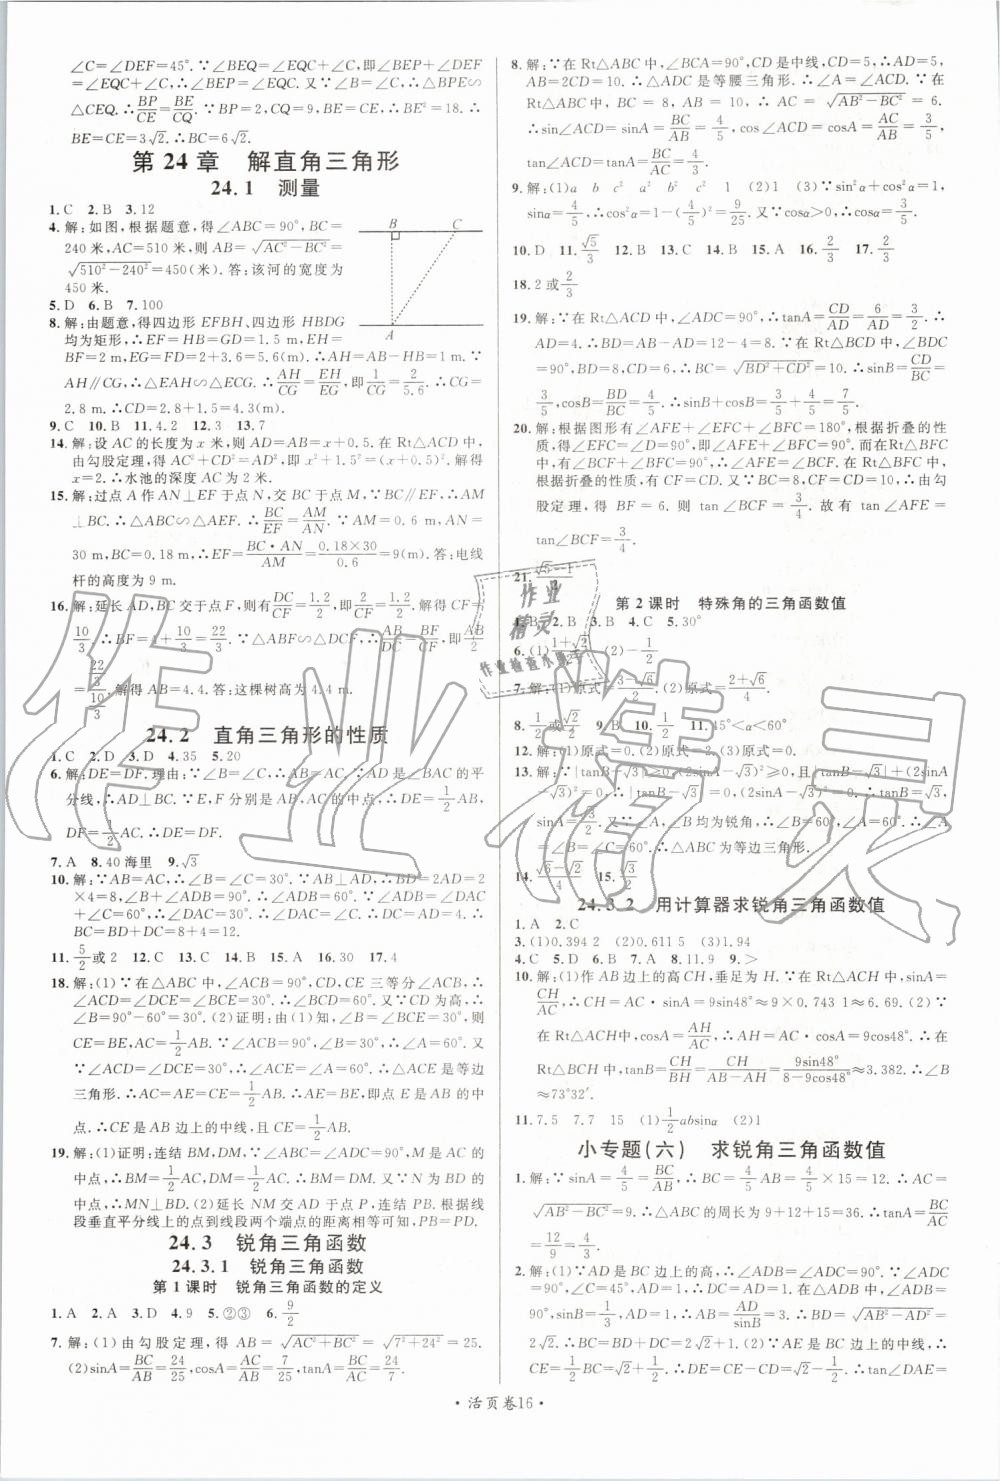 ∠C=∠DEF=45°.∵∠BEQ=∠EQC+∠C,即∠BEP+∠DEF
=∠EQC+∠C,∴∠BEP=∠EQC.又∵∠B=∠C,∴△BPE∽
△CEQ.∴BP/CE=BE/CQ.∵BP=2,CQ=9,BE=CE,∴BE²=18.∴
BE=CE=3√2.∴BC=6√2.
第24章 解直角三角形
24.1 测量
1.C 2.B 3.12
4.解:如图,根据题意,得∠ABC=90°,BC=
240米,AC=510米,则AB=√(AC²-BC²)=
√(510²-240²)=450(米).答:该河的宽度为
450米.
B C
A
5.D 6.B 7.100
8.解:由题意,得四边形EFBH、四边形HBDG
均为矩形.∴EF=HB=GD=1.5 m,EH=
BF=2 m,EG=FD=2+3.6=5.6(m).∴AH=AB-HB=1 m.∵
AH∥CG,∴△EAH∽△ECG.∴AH/CG=EH/EG,即1/CG=2/5.6.∴CG=
2.8 m.∴CD=2.8+1.5=4.3(m).
9.C 10.B 11.4.2 12.3 13.7
14.解:设AC的长度为x米,则AD=AB=x+0.5.在Rt△ACD中,
由勾股定理,得AC²+CD²=AD²,即x²+1.5²=(x+0.5)².解得
x=2.∴水池的深度AC为2米.
15.解:过点A作AN⊥EF于点N,交BC于点M,∵BC∥EF,∴AM
⊥BC.∴△ABC∽△AEF.∴BC/EF=AM/AN.∵AM=0.6 m,AN=
30 m,BC=0.18 m,∴EF=BC·AN/AM=0.18×30/0.6=9(m).答:电线
杆的高度为9 m.
16.解:延长AD,BC交于点F,则有DC/CF=1/1.2,解得CF=
10/3.∴BF=4+10/3=22/3.∵△ABF∽△DCF,∴AB/DC=BF/CF,即AB/2=
(22/3)/(10/3),解得AB=4.4.答:这棵树高为4.4 m.
24.2 直角三角形的性质
1.C 2.D 3.D 4.35 5.20
6.解:DE=DF.理由:∵∠B=∠C,∴AB=AC.∵AD是∠BAC的平
分线,∴AD⊥BC.∵E,F分别是AB,AC的中点,∴DE=1/2AB,
DF=1/2AC.∴DE=DF.
7.A 8.40海里 9.√3
10.解:∵AB=AC,∴∠B=∠C=30°.∵AB⊥AD,∴BD=2AD=2
×4=8,∠B+∠ADB=90°.∴∠ADB=60°.∵∠ADB=∠DAC
+∠C=60°,∴∠DAC=30°.∴∠DAC=∠C.∴DC=AD=4.∴BC
=BD+DC=8+4=12.
11.5/2或2 12.C 13.C 14.B 15.A 16.30 17.4
18.解:(1)∵在△ABC中,∠ACB=90°,CD,CE三等分∠ACB,∴
∠ACD=∠DCE=∠BCE=30°.∴∠BCD=60°.又∵CD为高,∴∠
B=90°-60°=30°.(2)证明:由(1)知,∠B=∠BCE=30°,则
CE=BE,AC=1/2AB.∵∠ACB=90°,∠B=30°,∴∠A=60°.又
∵∠ACD=∠DCE=30°,∴∠ACE=∠A=60°.∴△ACE是等边
三角形.∴AC=AE=CE=1/2AB.∴CE=AE=BE,即点E是AB的中
点.∴CE是AB边上的中线,且CE=1/2AB.
19.解:(1)证明:连结BM,DM,∵∠ABC=∠ADC=90°,M是AC的
中点,∴BM=1/2AC,DM=1/2AC.∴DM=BM.∵点N是BD的
中点,∴MN⊥BD.(2)延长NM交AD于点P,连结PB.根据线
段垂直平分线上的点到线段两个端点的距离相等可知,PB=PD.
24.3 锐角三角函数
24.3.1 锐角三角函数
第1课时 锐角三角函数的定义
1.A 2.A 3.D 4.9 5.②③ 6.9/2
7.解:(1)由勾股定理,得AB=√(AC²+BC²)=√(7²+24²)=25.
(2)sinA=BC/AB=24/25,cosA=AC/AB=7/25,tanA=BC/AC=24/7.
8.解:∵在Rt△ABC中,∠BCA=90°,CD是中线,CD=5,∴AD=5,
AB=2CD=10.∴△ADC是等腰三角形.∴∠A=∠ACD.∵在
Rt△ABC中,BC=8,AB=10,∴AC=√(AB²-BC²)=6.
∴sin∠ACD=sinA=BC/AB=4/5,cos∠ACD=cosA=AC/AB=3/5,
tan∠ACD=tanA=BC/AC=4/3.
9.解:(1)a b c² c² 1 (2)1 (3)∵sin²α+cos²α=1,
sinα=4/5,∴cos²α=1-(4/5)²=9/25.又∵cosα>0,∴cosα=3/5.
10.D 11.√5/3 12.B 13.C 14.B 15.A 16.2/3 17.2/3
18.2或2/3
19.解:∵在Rt△ACD中,∠ADC=90°,∴tanA=CD/AD=6/AD=3/2.∴
AD=4.∴BD=AB-AD=12-4=8.∵在Rt△BCD中,∠BDC
=90°,BD=8,CD=6,∴BC=√(BD²+CD²)=10.∴sinB=CD/BC=
3/5,cosB=BD/BC=4/5.∴sinB+cosB=3/5+4/5=7/5.
20.解:根据图形有∠AFE+∠EFC+∠BFC=180°,根据折叠的性
质,得∠EFC=∠D=90°,即∠AFE+∠BFC=90°.而在Rt△BFC
中,有∠BCF+∠BFC=90°,∴∠AFE=∠BCF.在Rt△BFC中,
根据折叠的性质,有CF=CD.又∵BC=8,CF=CD=10,由勾
股定理,得BF=6.则tan∠BCF=3/4.故有tan∠AFE=
tan∠BCF=3/4.
21.(√5-1)/2
第2课时 特殊角的三角函数值
1.B 2.B 3.B 4.C 5.30°
6.(1)(1+√2)/2 (2)-1/2
7.解:(1)原式=(3-√6)/2.(2)原式=(2+√6)/4.
8.1/2或√2/2 9.B 10.1/2 11.45°<α<60°
12.解:(1)原式=0.(2)原式=2.(3)原式=0.
13.解:∵|tanB-√3|≥0,(2sinA-√3)²≥0,|tanB-√3|+(2sinA
-√3)²=0,∴|tanB-√3|=0,(2sinA-√3)²=0.∴tanB=√3,
sinA=√3/2.又∵∠A,∠B均为锐角,∴∠B=60°,∠A=60°.∴∠A
=∠B=∠C=60°.∴△ABC为等边三角形.
14.(√6-√2)/4 15.√3/3
24.3.2 用计算器求锐角三角函数值
1.A 2.C
3.(1)0.394 2 (2)0.611 5 (3)1.94
4.C 5.D 6.B 7.A 8.11.9 9.>
10.解:(1)作AB边上的高CH,垂足为H.∵在Rt△ACH中,sinA=
CH/AC,∴CH=AC·sinA=9sin48°≈9×0.743 1≈6.69.(2)∵
在Rt△ACH中,cosA=AH/AC,∴AH=AC·cosA=9cos48°.∴在
Rt△BCH中,tanB=CH/BH=CH/(AB-AH)=9sin48°/(8-9cos48°)≈3.382.∴∠B
≈73°32′.
11.7.5 7.7 15 (1)1/2absinα (2)1
小专题(六) 求锐角三角函数值
1.解:∵sinA=4/5=BC/AB,∴BC=4/5AB=4/5×15=12.∴AC=
√(AB²-BC²)=9.∴△ABC的周长为9+12+15=36.∴tanA=BC/AC
=12/9=4/3.
2.解:(1)∵AD是BC边上的高,∴∠ADB=∠ADC=90°.∵∠ADC
=90°,∠C=45°,∴∠DAC=∠C=45°.∴AD=CD.∵∠ADB=
90°,sinB=1/3,AD=1,∴AB=AD/sinB=3.∴BD=√(AB²-AD²)=
2√2.∴BC=BD+CD=2√2+1.(2)∵AE是BC边上的中线,∴
CE=1/2BC=√2+1/2.∴DE=CE-CD=√2-1/2.∴tan∠DAE=
·活页卷16·
作业精灵
作业
精灵
作业检查小助手